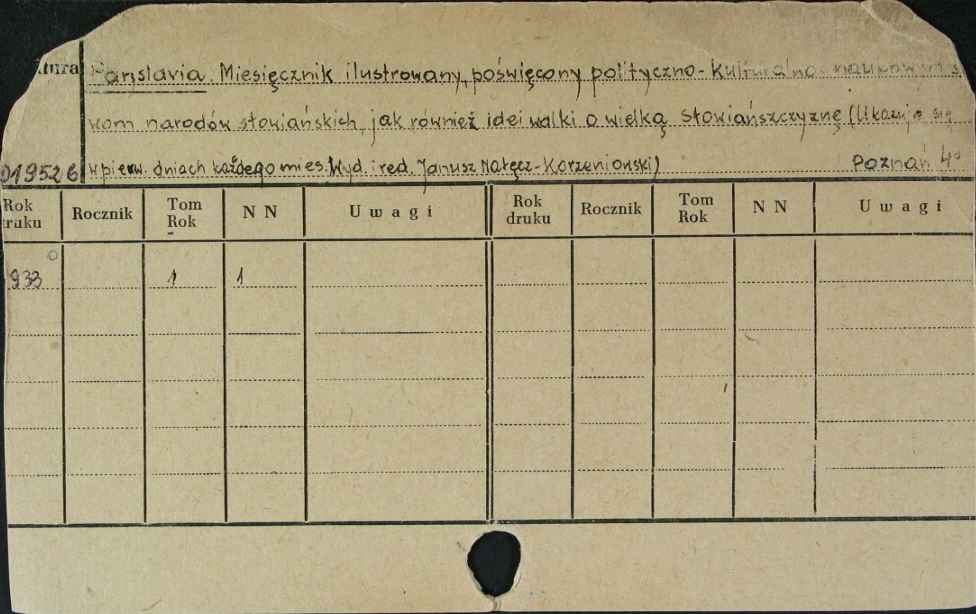 Panslavia. Miesięcznik ilustrowany, poświęcony polityczno-kulturalno-naukowym s
kom narodów słowiańskich, jak również idei walki o wielką słowiańszczyznę (Ukazuje się
019526 w pierw. dniach każdego mies. Wyd. i red. Janusz Nałęcz-Korzeniowski) Poznań 4°
Rok druku Rocznik Tom Rok N N Uwagi Rok druku Rocznik Tom Rok N N Uwagi
933 1 1